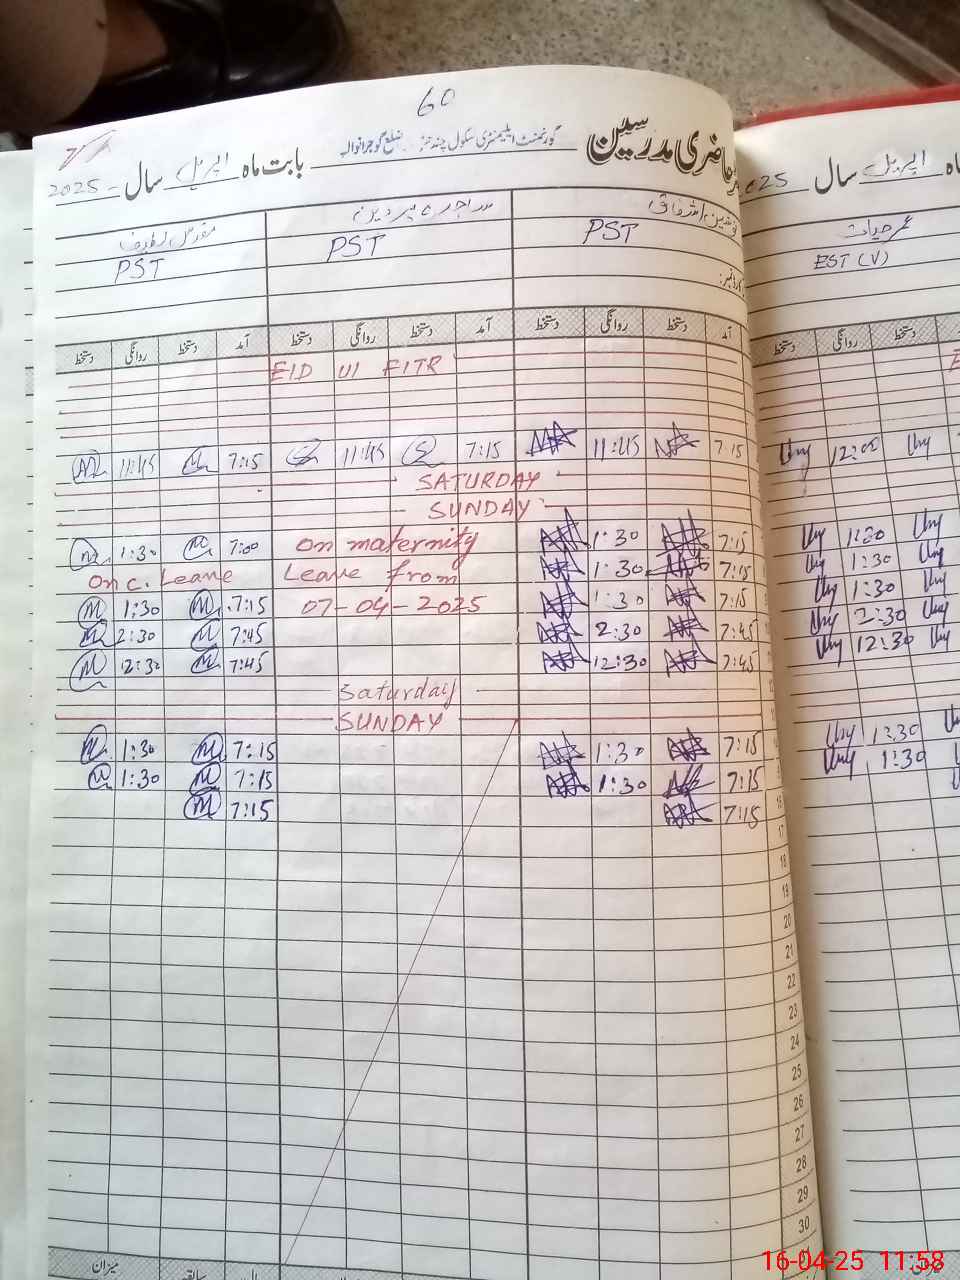 60
حاضری مدرسین گورنمنٹ ایلیمنٹری سکول ضلع گوجرانوالہ بابت ماہ اپریل سال 2025
025 سال اپریل
نوشین اشفاق
عمر حیات
PST PST PST
EST (V)
آمد دستخط روانگی دستخط آمد دستخط روانگی دستخط آمد دستخط روانگی دستخط
دستخط روانگی دستخط
EID UI FITR
11:45 7:15 11:45 7:15 11:45 7:15 12:05
SATURDAY
SUNDAY
1:30 7:00 On maternity 1:30 7:15 1:30
On C. Leave Leave from 1:30 7:15 1:30
1:30 7:15 07-04-2025 1:30 7:15 1:30
2:30 7:45 2:30 7:45 2:30
12:30 7:45 12:30 7:45 12:30
Saturday
SUNDAY
1:30 7:15 1:30 7:15 1:30
1:30 7:15 1:30 7:15 1:30
7:15 7:15 16
17
18
19
20
21
22
23
24
25
26
27
28
29
30
میزان
16-04-25 11:58